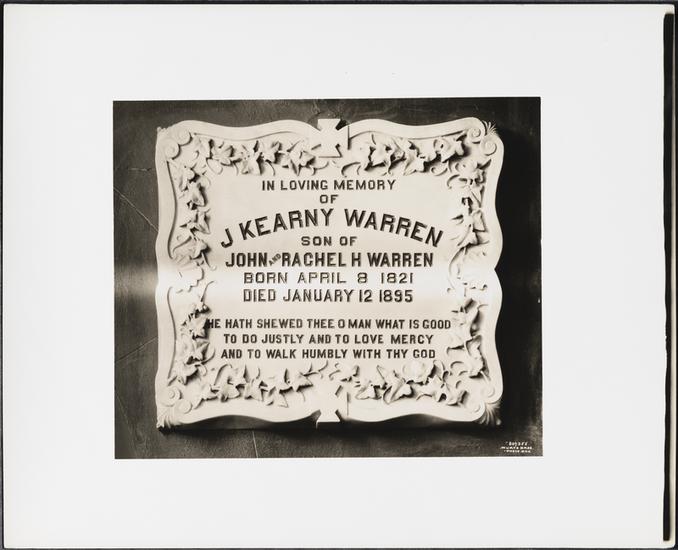 IN LOVING MEMORY
OF
J KEARNY WARREN
SON OF
JOHN AND RACHEL H WARREN
BORN APRIL 8 1821
DIED JANUARY 12 1895
HE HATH SHEWED THEE O MAN WHAT IS GOOD
TO DO JUSTLY AND TO LOVE MERCY
AND TO WALK HUMBLY WITH THY GOD
WURTS BROS.